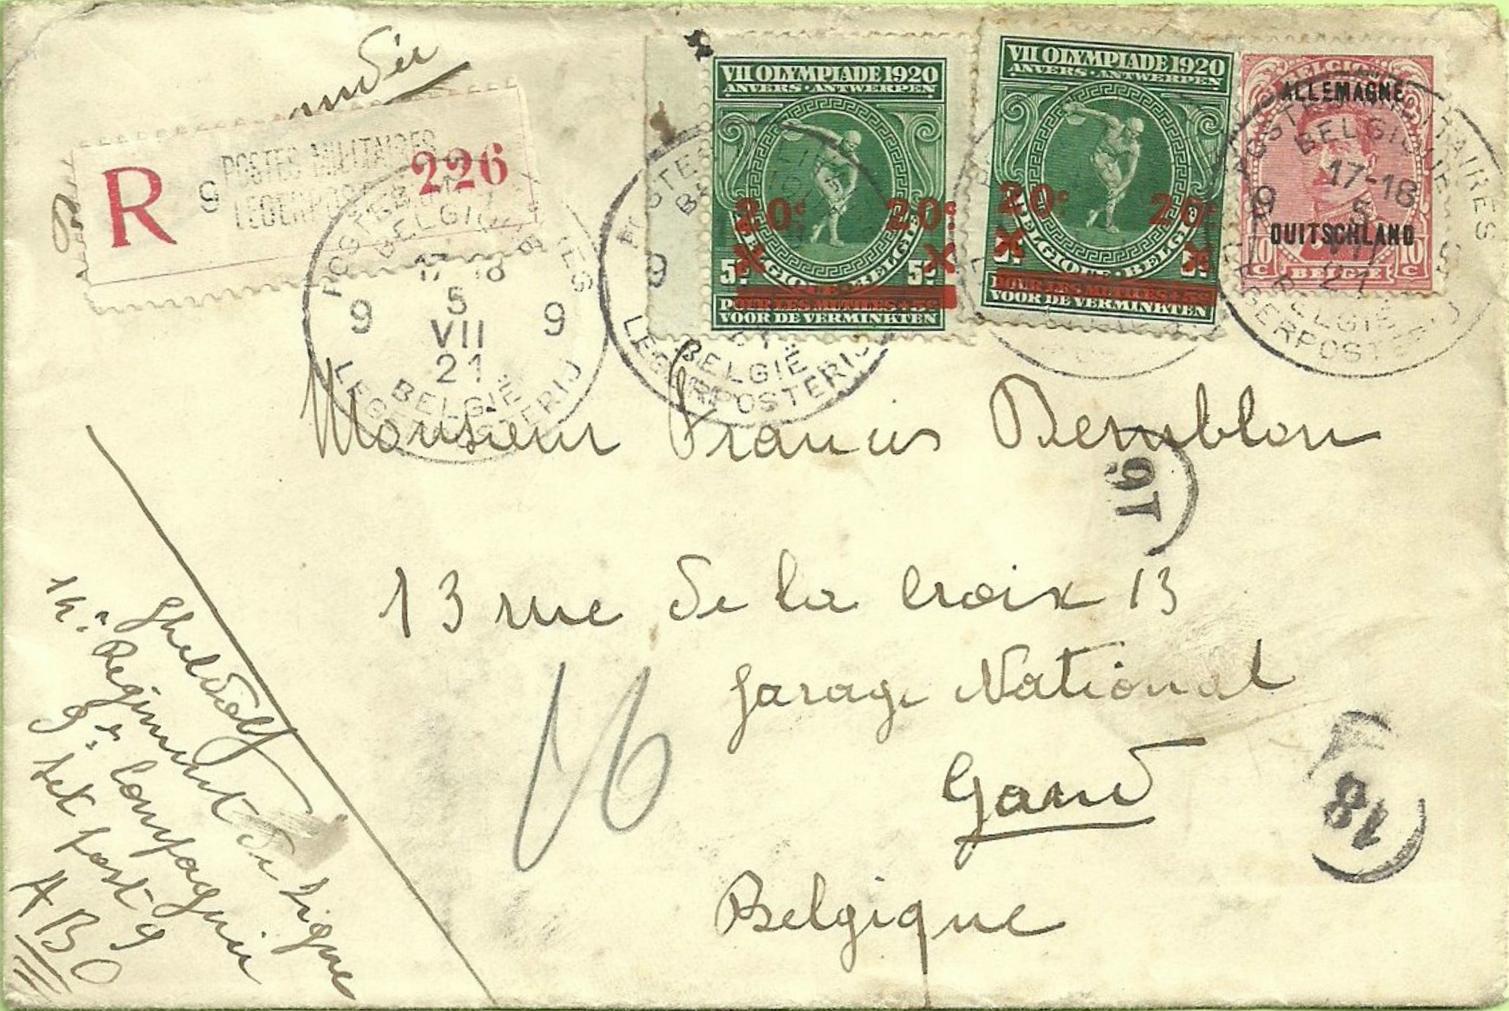 R 9 POSTES MILITAIRES 226
LEGERPOSTERIJ
VII OLYMPIADE 1920
ANVERS · ANTWERPEN
20c 20c
5c 5c
BELGIQUE · BELGIË
POUR LES MUTILES + 5c
VOOR DE VERMINKTEN
VII OLYMPIADE 1920
ANVERS · ANTWERPEN
20c 20c
BELGIQUE · BELGIË
POUR LES MUTILES + 5c
VOOR DE VERMINKTEN
BELGIQUE
ALLEMAGNE
DUITSCHLAND
10 C BELGIË 10 C
POSTES MILITAIRES
BELGIQUE
17-18
9 5 9
VII
21
BELGIË
LEGERPOSTERIJ
POSTES
9
BELGIË
LEGERPOSTERIJ
POSTES MILITAIRES
BELGIQUE
17-18
9 5 9
VII
21
BELGIË
LEGERPOSTERIJ
Monsieur Francis Bemblon
13 rue de la Croix 13
Garage National
Gand
Belgique
16
18
Régiment de Ligne
9e Compagnie
post 9
A B O